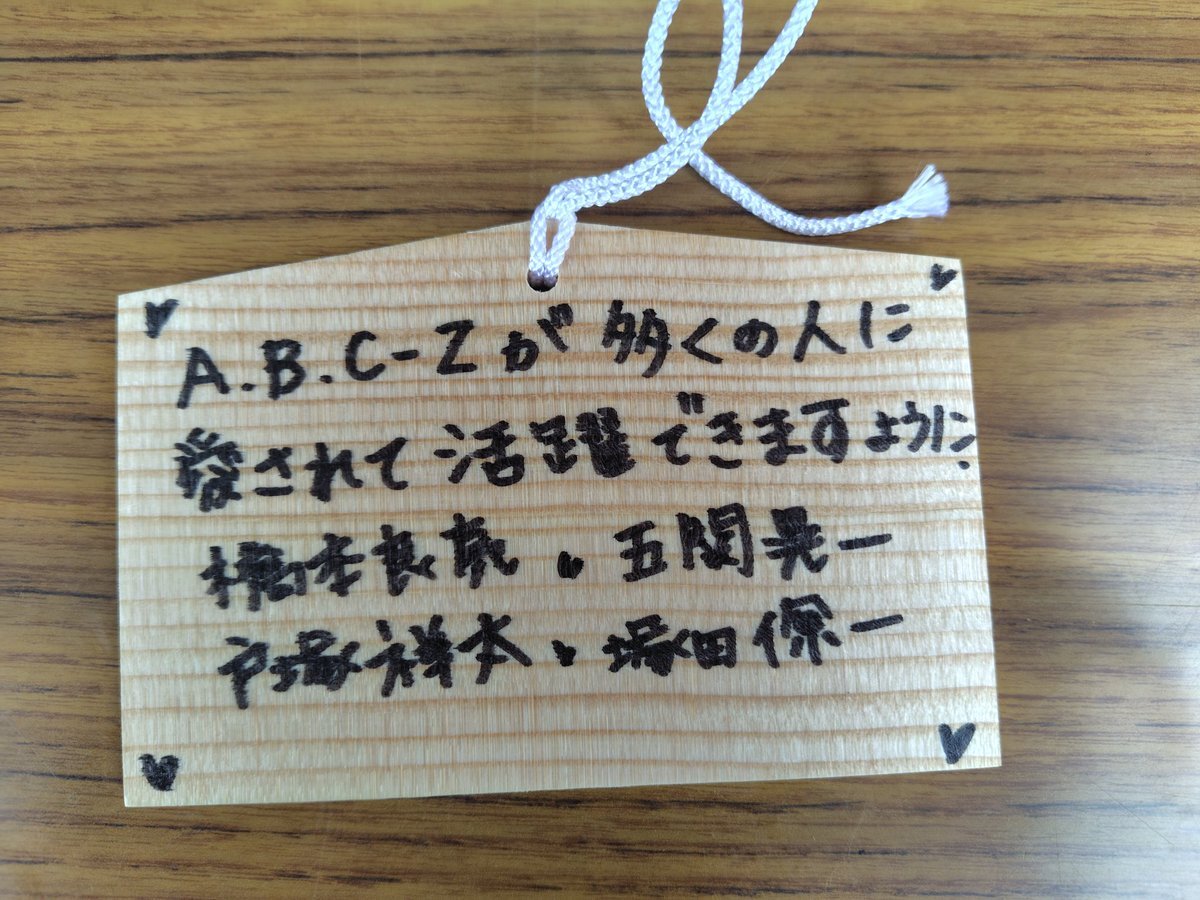 A.B.C-Zが多くの人に
愛されて活躍できますように、
橋本良亮・五関晃一
戸塚祥太・塚田僚一